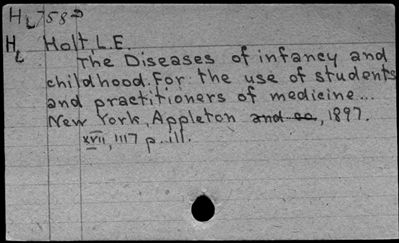 HL 758
HL Holt, L.E.
The Diseases of infancy and
childhood. For the use of students
and practitioners of medicine...
New York, Appleton and co, 1897.
xvii, 1117 p. ill.